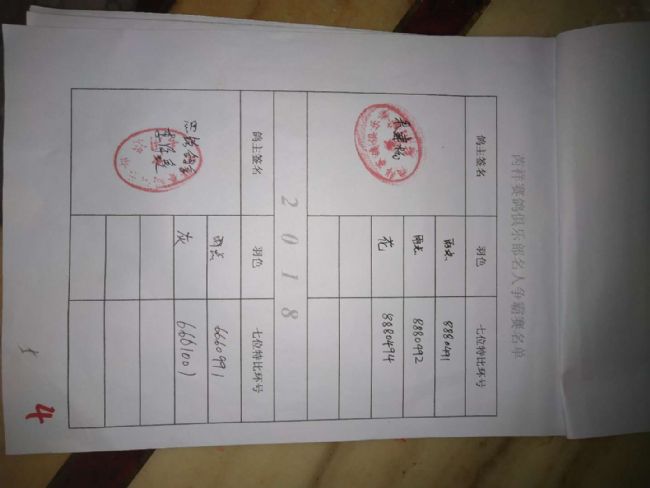 芮祥赛鸽俱乐部名人争霸赛名单
鸽主签名 羽色 七位特比环号
雨点 8880491
雨点 8880492
花 8880494
2018
鸽主签名 羽色 七位特比环号
雨点 6660991
灰 6661001
4